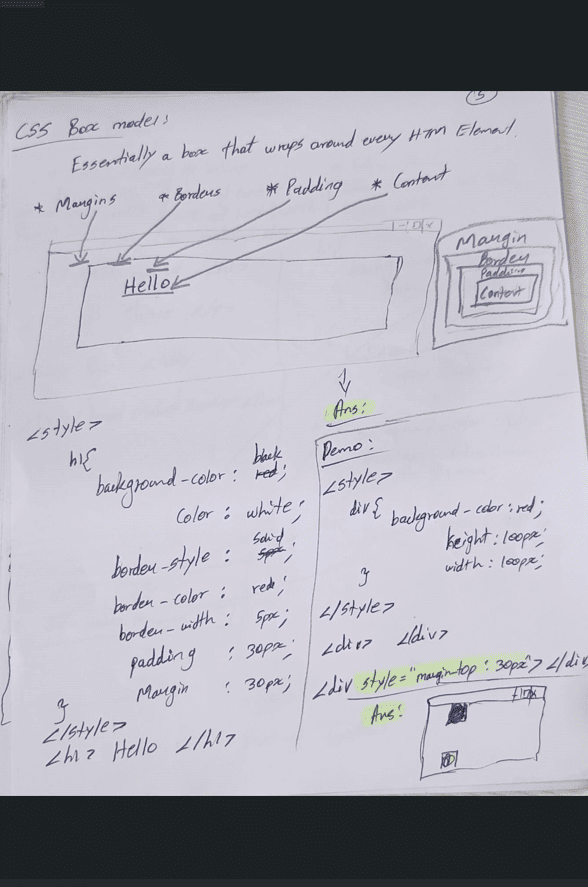 5
CSS Box model:
Essentially a box that wraps around every HTML Element.
* Margins * Borders * Padding * Content
Hello
Margin
Border
Padding
Content
Ans:
<style>
h1{
background-color : black red;
color : white;
border-style : solid 5px;
border-color : red;
border-width : 5px;
padding : 30px;
Margin : 30px;
}
</style>
<h1> Hello </h1>
Demo:
<style>
div{ background-color : red;
height : 100px;
width : 100px;
}
</style>
<div> </div>
<div style="margin-top : 30px"> </div
Ans: